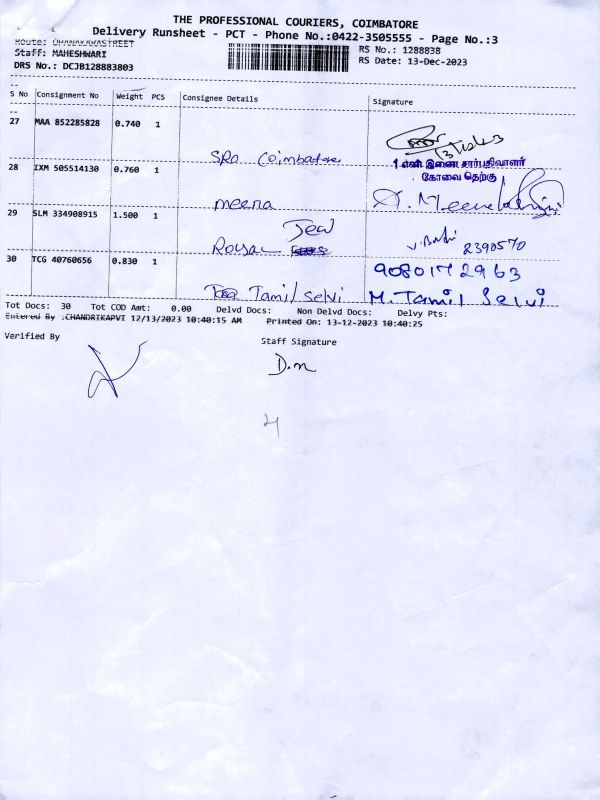 THE PROFESSIONAL COURIERS, COIMBATORE
Delivery Runsheet - PCT - Phone No.:0422-3505555 - Page No.:3
Route:
Staff: MAHESHWARI
RS No.: 1288838
DRS No.: DCJB128883803
RS Date: 13-Dec-2023
S No Consignment No Weight PCS Consignee Details Signature
27 MAA 852285828 0.740 1
SRO Coimbatore
1 எண் இணை சார்பதிவாளர்
கோவை தெற்கு
28 IXM 505514130 0.760 1
meena
29 SLM 334908915 1.500 1
Royal
2390570
30 TCG 40760656 0.830 1
9080172963
Tamil Selvi M. Tamil Selvi
Tot Docs: 30 Tot COD Amt: 0.00 Delvd Docs: Non Delvd Docs: Delvy Pts:
Entered By :CHANDRIKAPVI 12/13/2023 10:40:15 AM Printed On: 13-12-2023 10:40:25
Verified By
Staff Signature
D.M